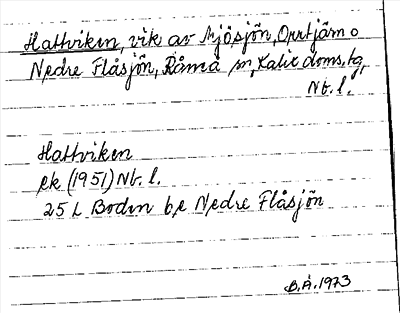 Hattviken, vik av Mjösjön, Orrtjärn o
Nedre Flåsjön, Råneå sn, Kalix doms.tg,
Nb. l.
Hattviken
ek (1951) Nb. l.
25 L Boden b,e Nedre Flåsjön
B.Å. 1973